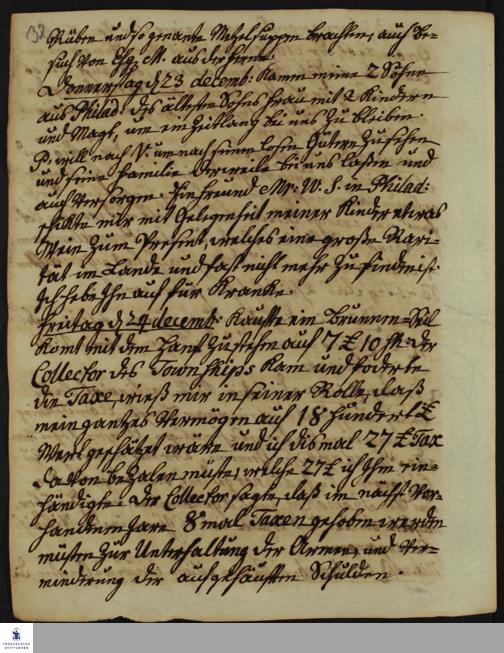 32
Rüben und so genante Metzelsuppen brachten, auch be=
such von Esq. M. aus der ferne.
Donnerstag d 23 decemb: Kamen meine 2 Söhne
aus Philad: des ältesten Sohns frau mit 2 Kindern
und Magt, um ein Zeitlang bei uns zu bleiben.
P. will nach V: um nach seinen losen Gütern zu sehen
und seine familie derweile bei uns laßen und
auch versorgen. Ein freund Mr. W. S. in Philad:
schikte mir mit Gelegenheit meiner Kinder etwas
Wein zum Present, welches eine große Rari=
tät im Lande und fast nicht mehr zu finden ist.
Ich hebe Ihn auf für Kranke.
freitag d 24 decemb: Kaufte ein brunnen=Seil
Komt mit dem Hanf zu stehn auf 7 £ 10 sh: der
Collector des Townships Kam und foderte
die Taxe, wieß mir in seiner Rolle, daß
mein gantzes Vermögen auf 18 hundert £
Werth geschätzt wäre und ich dismal 27 £ Tax
davon bezalen müste, welche 27 £ ich Ihm ein=
händigte. Der Collector sagte, daß im nächst vor=
handenen Jare 8 mal Taxen gehoben werden
müsten zur Unterhaltung der Armee, und Ver=
minderung der aufgehäuften Schulden.
FRANCKESCHE
STIFTUNGEN